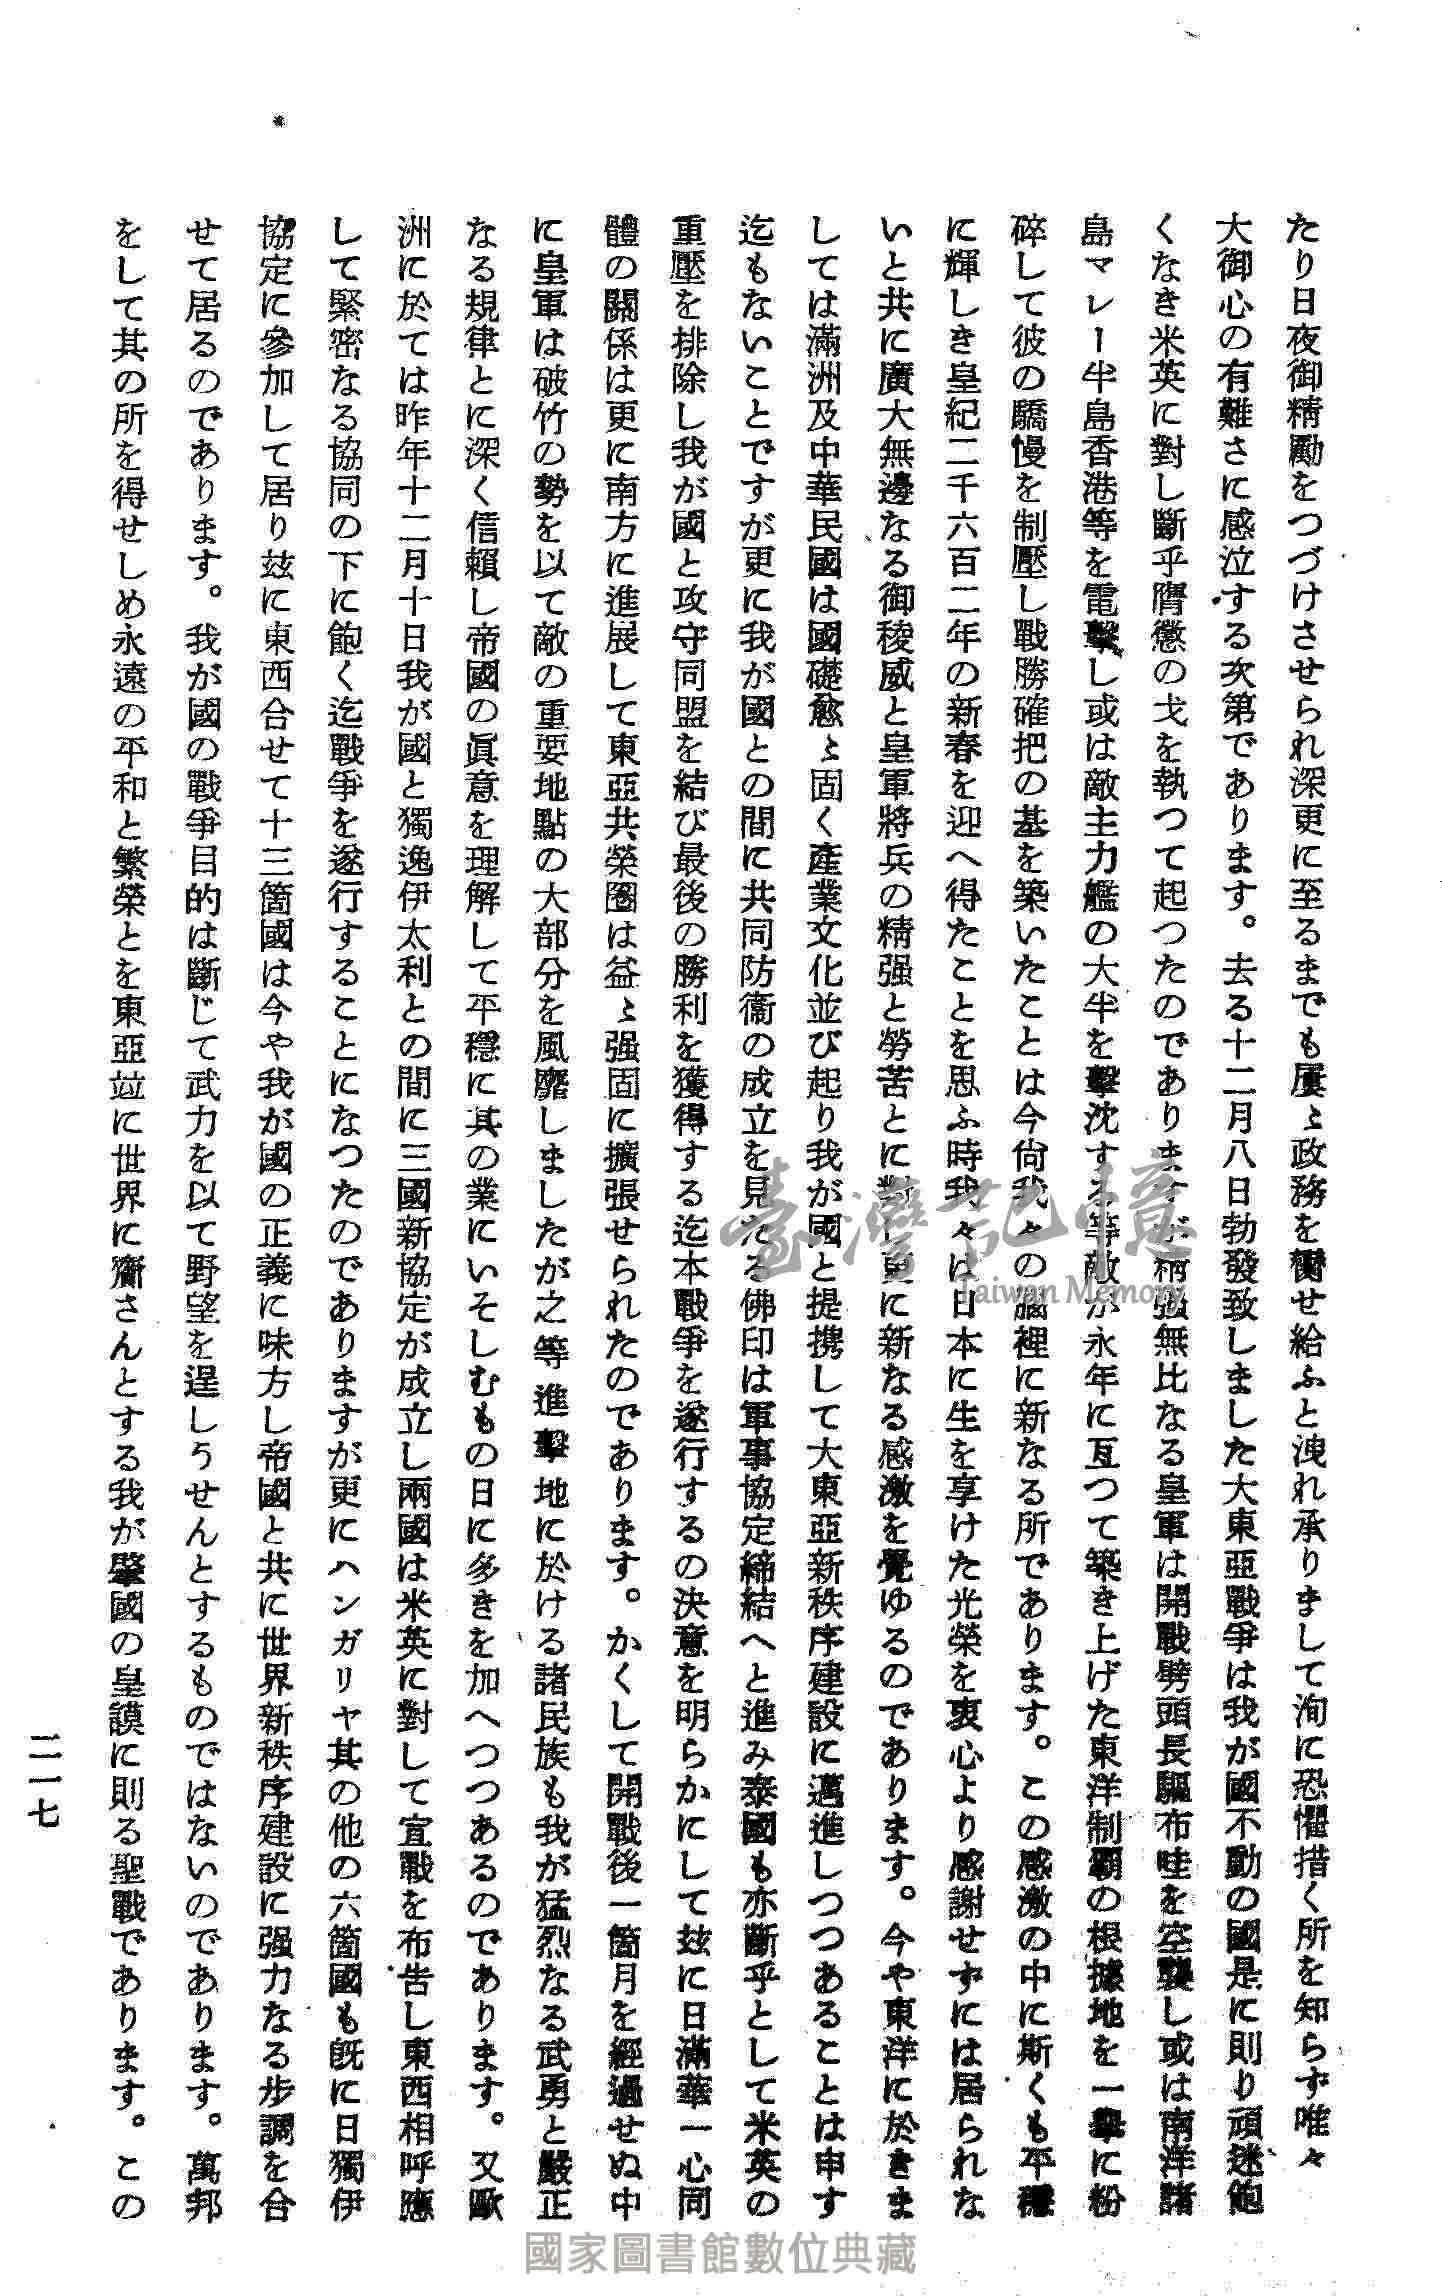 たり日夜御精勵をつづけさせられ深更に至るまでも屢〻政務を臠せ給ふと洩れ承りまして洵に恐懼措く所を知らず唯々
大御心の有難さに感泣する次第であります。去る十二月八日勃發致しました大東亞戰爭は我が國不動の國是に則り頑迷飽
くなき米英に對し斷乎膺懲の戈を執つて起つたのでありますが精强無比なる皇軍は開戰劈頭長驅布哇を空襲し或は南洋諸
島マレー半島香港等を電擊し或は敵主力艦の大半を擊沈する等敵が永年に亙つて築き上げた東洋制霸の根據地を一擧に粉
碎して彼の驕慢を制壓し戰勝確把の基を築いたことは今尙我々の腦裡に新なる所であります。この感激の中に斯くも平穩
に輝しき皇紀二千六百二年の新春を迎へ得たことを思ふ時我々は日本に生を享けた光榮を衷心より感謝せずには居られな
いと共に廣大無邊なる御稜威と皇軍將兵の精强と勞苦とに對し更に新なる感激を覺ゆるのであります。今や東洋に於きま
しては滿洲及中華民國は國礎愈〻固く產業文化並び起り我が國と提携して大東亞新秩序建設に邁進しつつあることは申す
迄もないことですが更に我が國との間に共同防衞の成立を見たる佛印は軍事協定締結へと進み泰國も亦斷乎として米英の
重壓を排除し我が國と攻守同盟を結び最後の勝利を獲得する迄本戰爭を遂行するの決意を明らかにして玆に日滿華一心同
體の關係は更に南方に進展して東亞共榮圈は益〻强固に擴張せられたのであります。かくして開戰後一箇月を經過せぬ中
に皇軍は破竹の勢を以て敵の重要地點の大部分を風靡しましたが之等進擊地に於ける諸民族も我が猛烈なる武勇と嚴正
なる規律とに深く信賴し帝國の眞意を理解して平穩に其の業にいそしむもの日に多きを加へつつあるのであります。又歐
洲に於ては昨年十二月十日我が國と獨逸伊太利との間に三國新協定が成立し兩國は米英に對して宣戰を布告し東西相呼應
して緊密なる協同の下に飽く迄戰爭を遂行することになつたのでありますが更にハンガリヤ其の他の六箇國も旣に日獨伊
協定に參加して居り玆に東西合せて十三箇國は今や我が國の正義に味方し帝國と共に世界新秩序建設に强力なる步調を合
せて居るのであります。我が國の戰爭目的は斷じて武力を以て野望を逞しうせんとするものではないのであります。萬邦
をして其の所を得せしめ永遠の平和と繁榮とを東亞竝に世界に齎さんとする我が肇國の皇謨に則る聖戰であります。この
二一七
臺灣記憶
Taiwan Memory
國家圖書館數位典藏